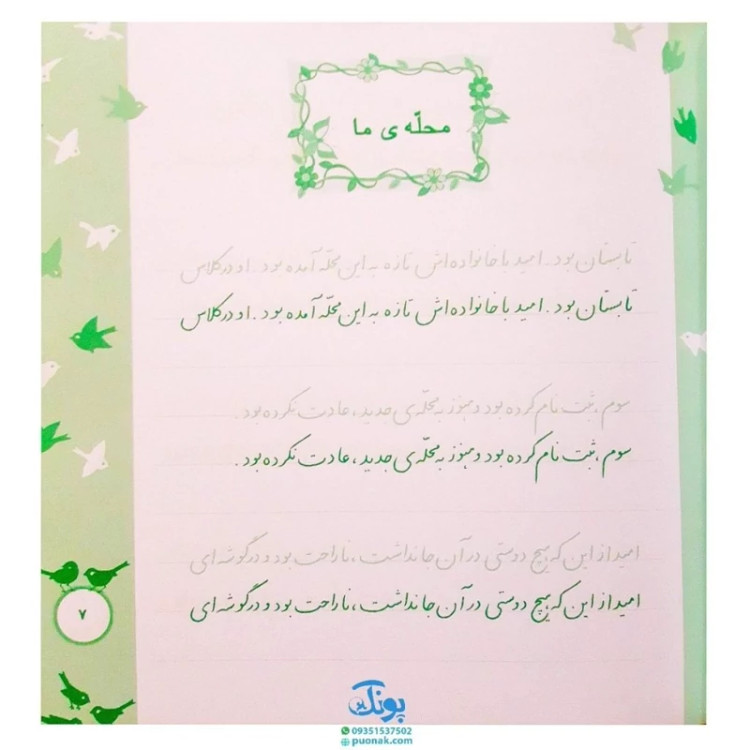 محلّه ی ما
تابستان بود. امید با خانواده‌اش تازه به این محلّه آمده بود. او در کلاس
تابستان بود. امید با خانواده‌اش تازه به این محلّه آمده بود. او در کلاس
سوم، ثبت نام کرده بود و هنوز به محلّه‌ی جدید، عادت نکرده بود.
سوم، ثبت نام کرده بود و هنوز به محلّه‌ی جدید، عادت نکرده بود.
امید از این که هیچ دوستی در آن جا نداشت، ناراحت بود و در گوشه‌ای
امید از این که هیچ دوستی در آن جا نداشت، ناراحت بود و در گوشه‌ای
۷
پونک
09351537502
puonak.com